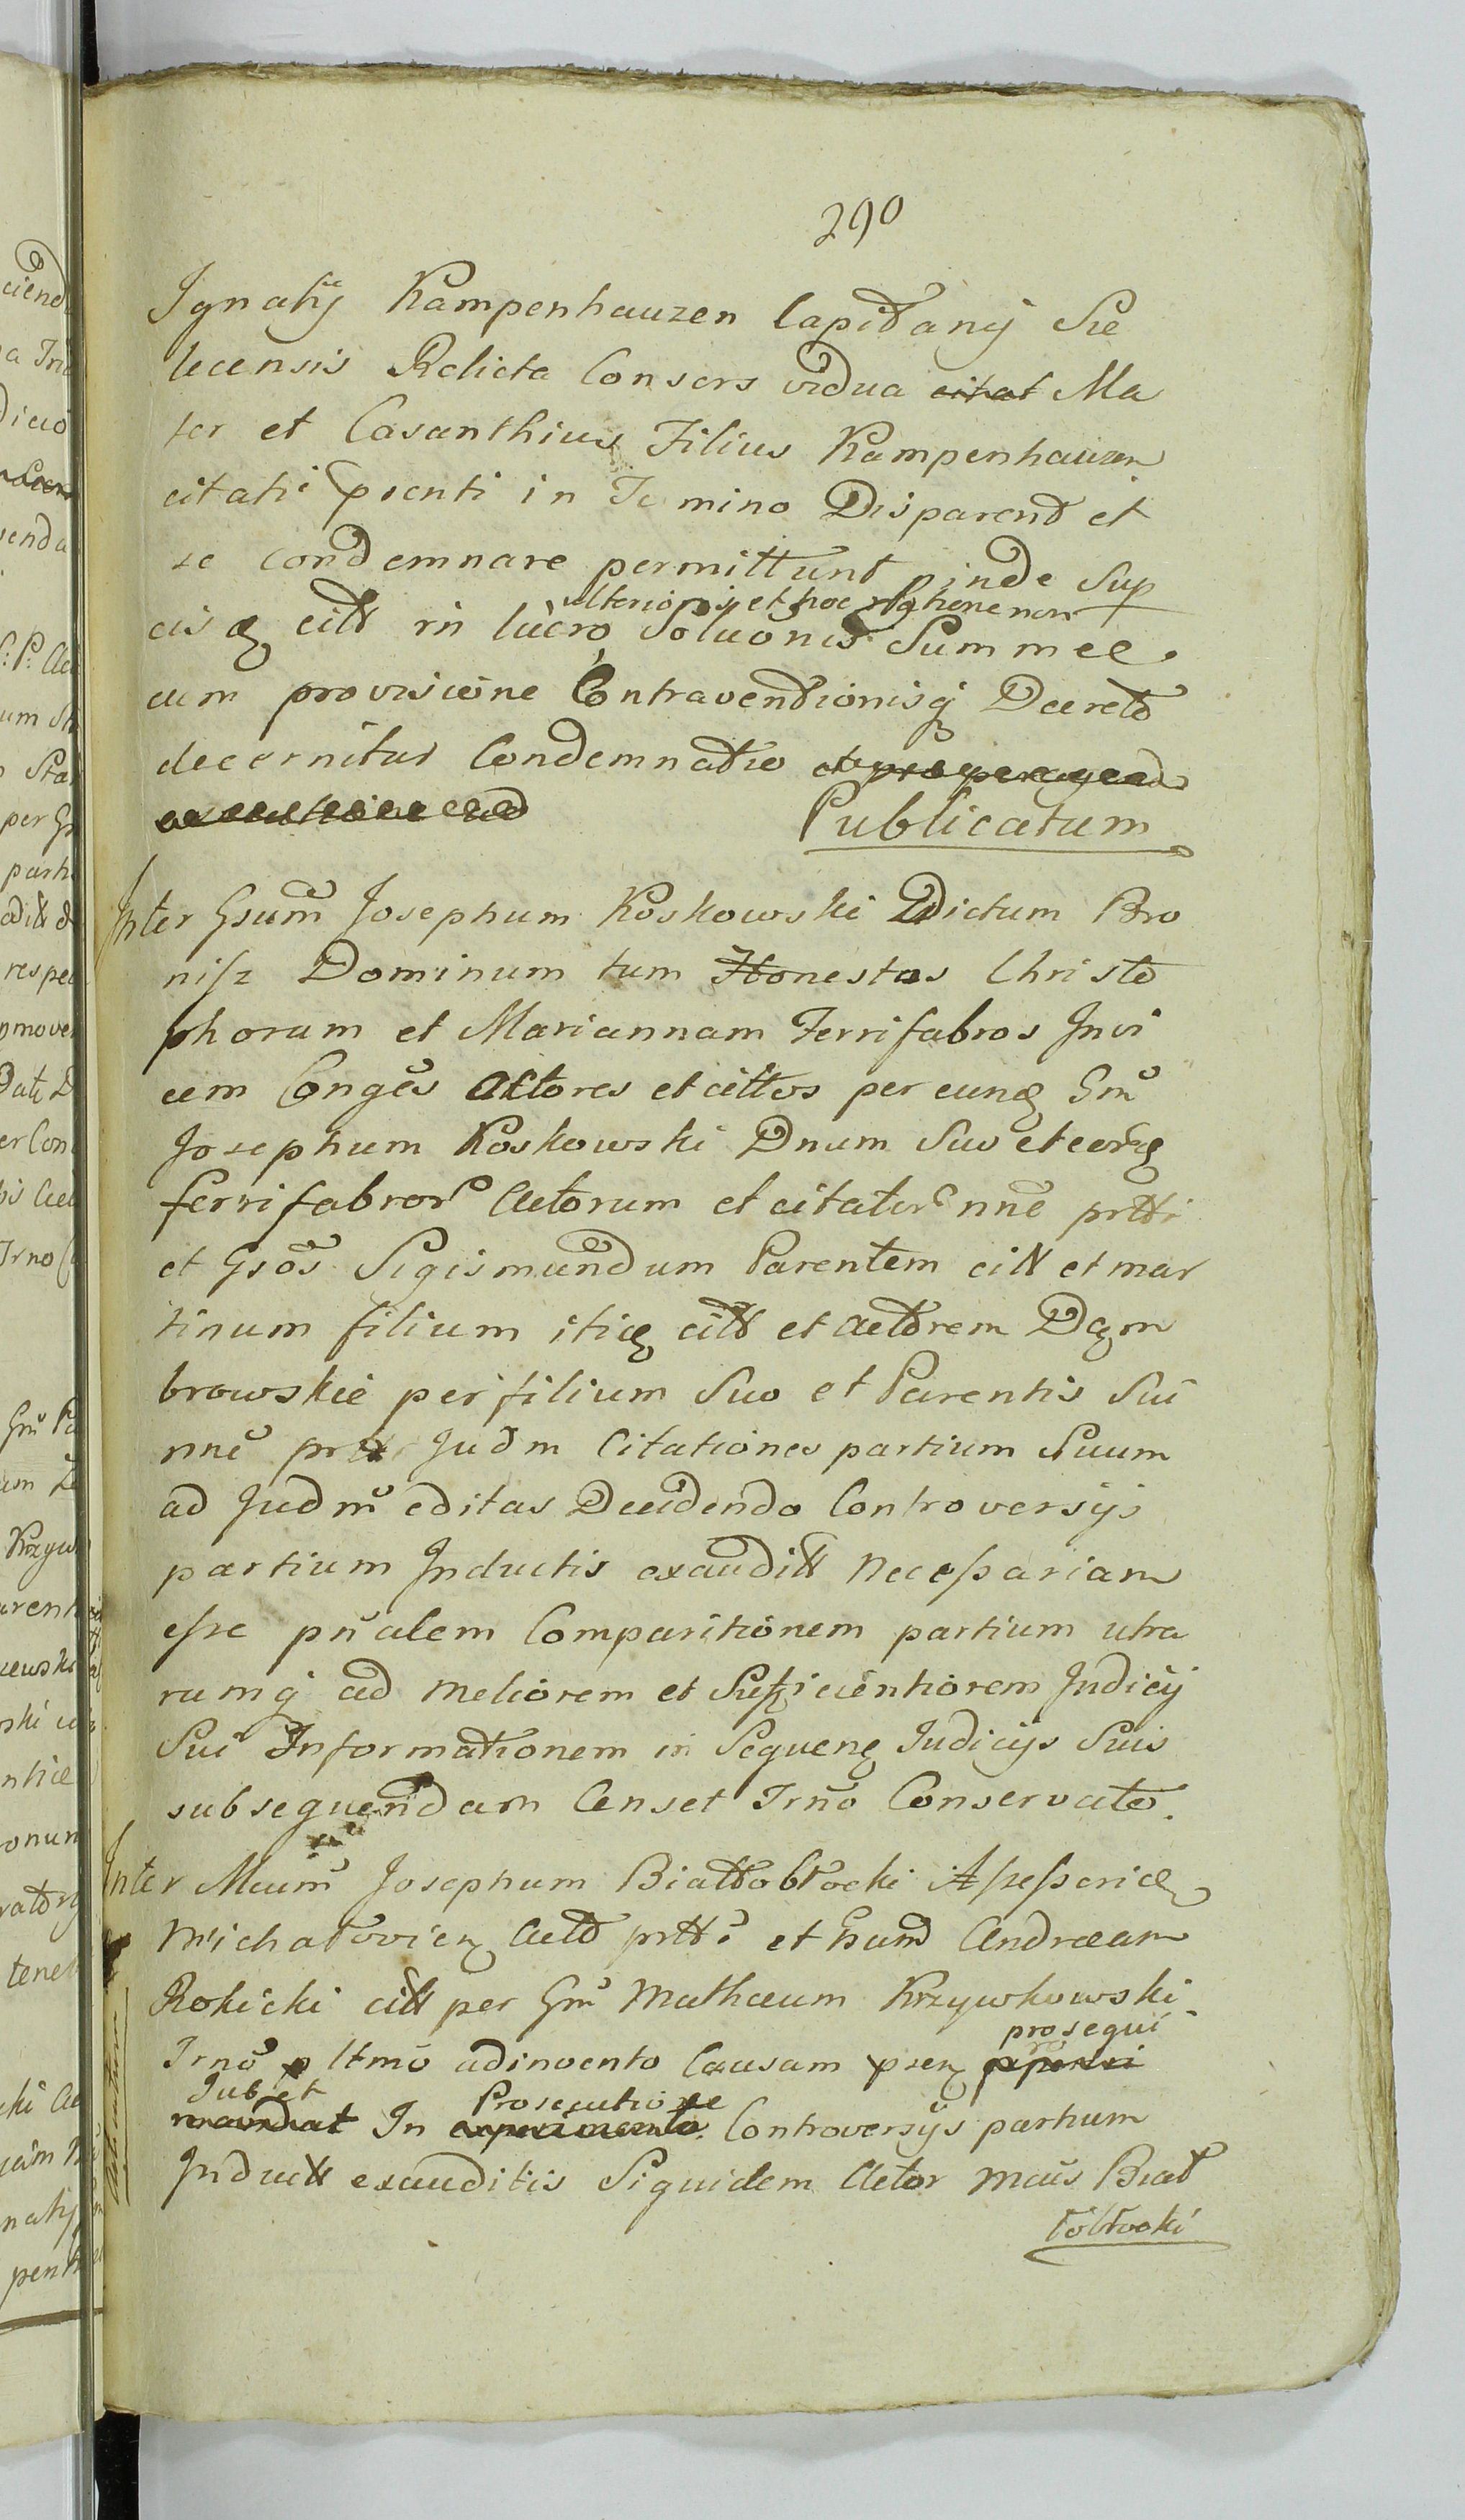 290
Ignatij Kampenhauzen Capitanij Sie
lecensis Relicta Consors vidua citat Ma
ter et Casanthius Filius Kampenhauzen
citati in Te mino Disparend et
se condemnare permittunt pinde Sup
ulterioris et hoc non
eisq citt in lucro Soluonis Summee
cum provisione Contraventionisq Decreto
decernitur Condemnatio et pro peragend
Publicatum
Inter Gsum Josephum Koskowski Dictum Bro
nisz Dominum tum Honestos Christo
phorum et Mariannam Ferrifabros Invi
cem Conges Actores et cittos per eunq Gm
Josephum Koskowski Dnum Suo et eorq
ferrifabror Actorum et citator nne prtti
et Gsos Sigismundum Parentem citt et mar
tinum filium itiq citt et actorem Dęm
browskie per filium Suo et Parentis Sui
nne Judm Citationes partium Suum
ad Judm editas Decidendo Controversijs
partium Inductis exauditt necessariam
esse pnalem Comparitionem partium utra
rumq ad meliorem et Sufficientiorem Judicij
Sui Informationem in Sequenq Judicijs Suis
subsequendam Censet Trno Conservato.
Inter Mcum Josephum Białłobłocki Assessoriae
Michałowien Actt prtti et hund Andream
Rokicki citt per Gm Mathaeum Krzywkowski
prosequi
Trno p ltmo adinvento Causam pren
Jubet Prosecutione
mandat In experimento Controversijs partium
Inductt exauditis Siquidem Actor Mcus Biał
łobłocki